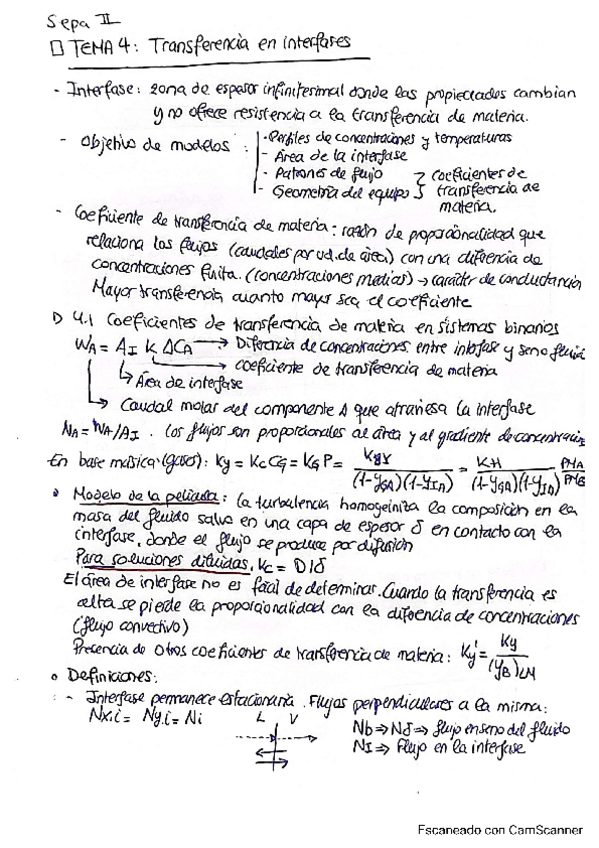 Sepa II
TEMA 4: Transferencia en interfases
- Interfase: zona de espesor infinitesimal donde las propiedades cambian
y no ofrece resistencia a la transferencia de materia.
- Objetivo de modelos:
- Perfiles de concentraciones y temperaturas
- Área de la interfase
- Patrones de flujo
- Geometría del equipo
} coeficientes de
transferencia de
materia.
- Coeficiente de transferencia de materia: razón de proporcionalidad que
relaciona los flujos (caudales por ud. de área) con una diferencia de
concentraciones finita. (concentraciones medias) → carácter de conductancia
Mayor transferencia cuanto mayor sea el coeficiente
4.1 Coeficientes de transferencia de materia en sistemas binarios
WA = AI K ΔCA → Diferencia de concentraciones entre interfase y seno fluido
→ coeficiente de transferencia de materia
→ Área de interfase
→ Caudal molar del componente A que atraviesa la interfase
NA = WA/AI. Los flujos son proporcionales al área y al gradiente de concentración
En base másica (gases): Ky = Kc CG = KG P = KgY / (1-yGA)(1-yIA) = KH / (1-yGA)(1-yIA) PMA / PMB
• Modelo de la película: la turbulencia homogeiniza la composición en la
masa del fluido salvo en una capa de espesor δ en contacto con la
interfase, donde el flujo se produce por difusión
Para soluciones diluidas, Kc = D/δ
El área de interfase no es fácil de determinar. Cuando la transferencia es
alta se pierde la proporcionalidad con la diferencia de concentraciones
(flujo convectivo)
Presencia de otros coeficientes de transferencia de materia: Ky' = Ky / (yB)LM
• Definiciones:
- Interfase permanece estacionaria. Flujos perpendiculares a la misma:
Nx,i = Ny,i = Ni
L V
Nb ⇒ Nδ ⇒ flujo en seno del fluido
NI ⇒ Flujo en la interfase
Escaneado con CamScanner